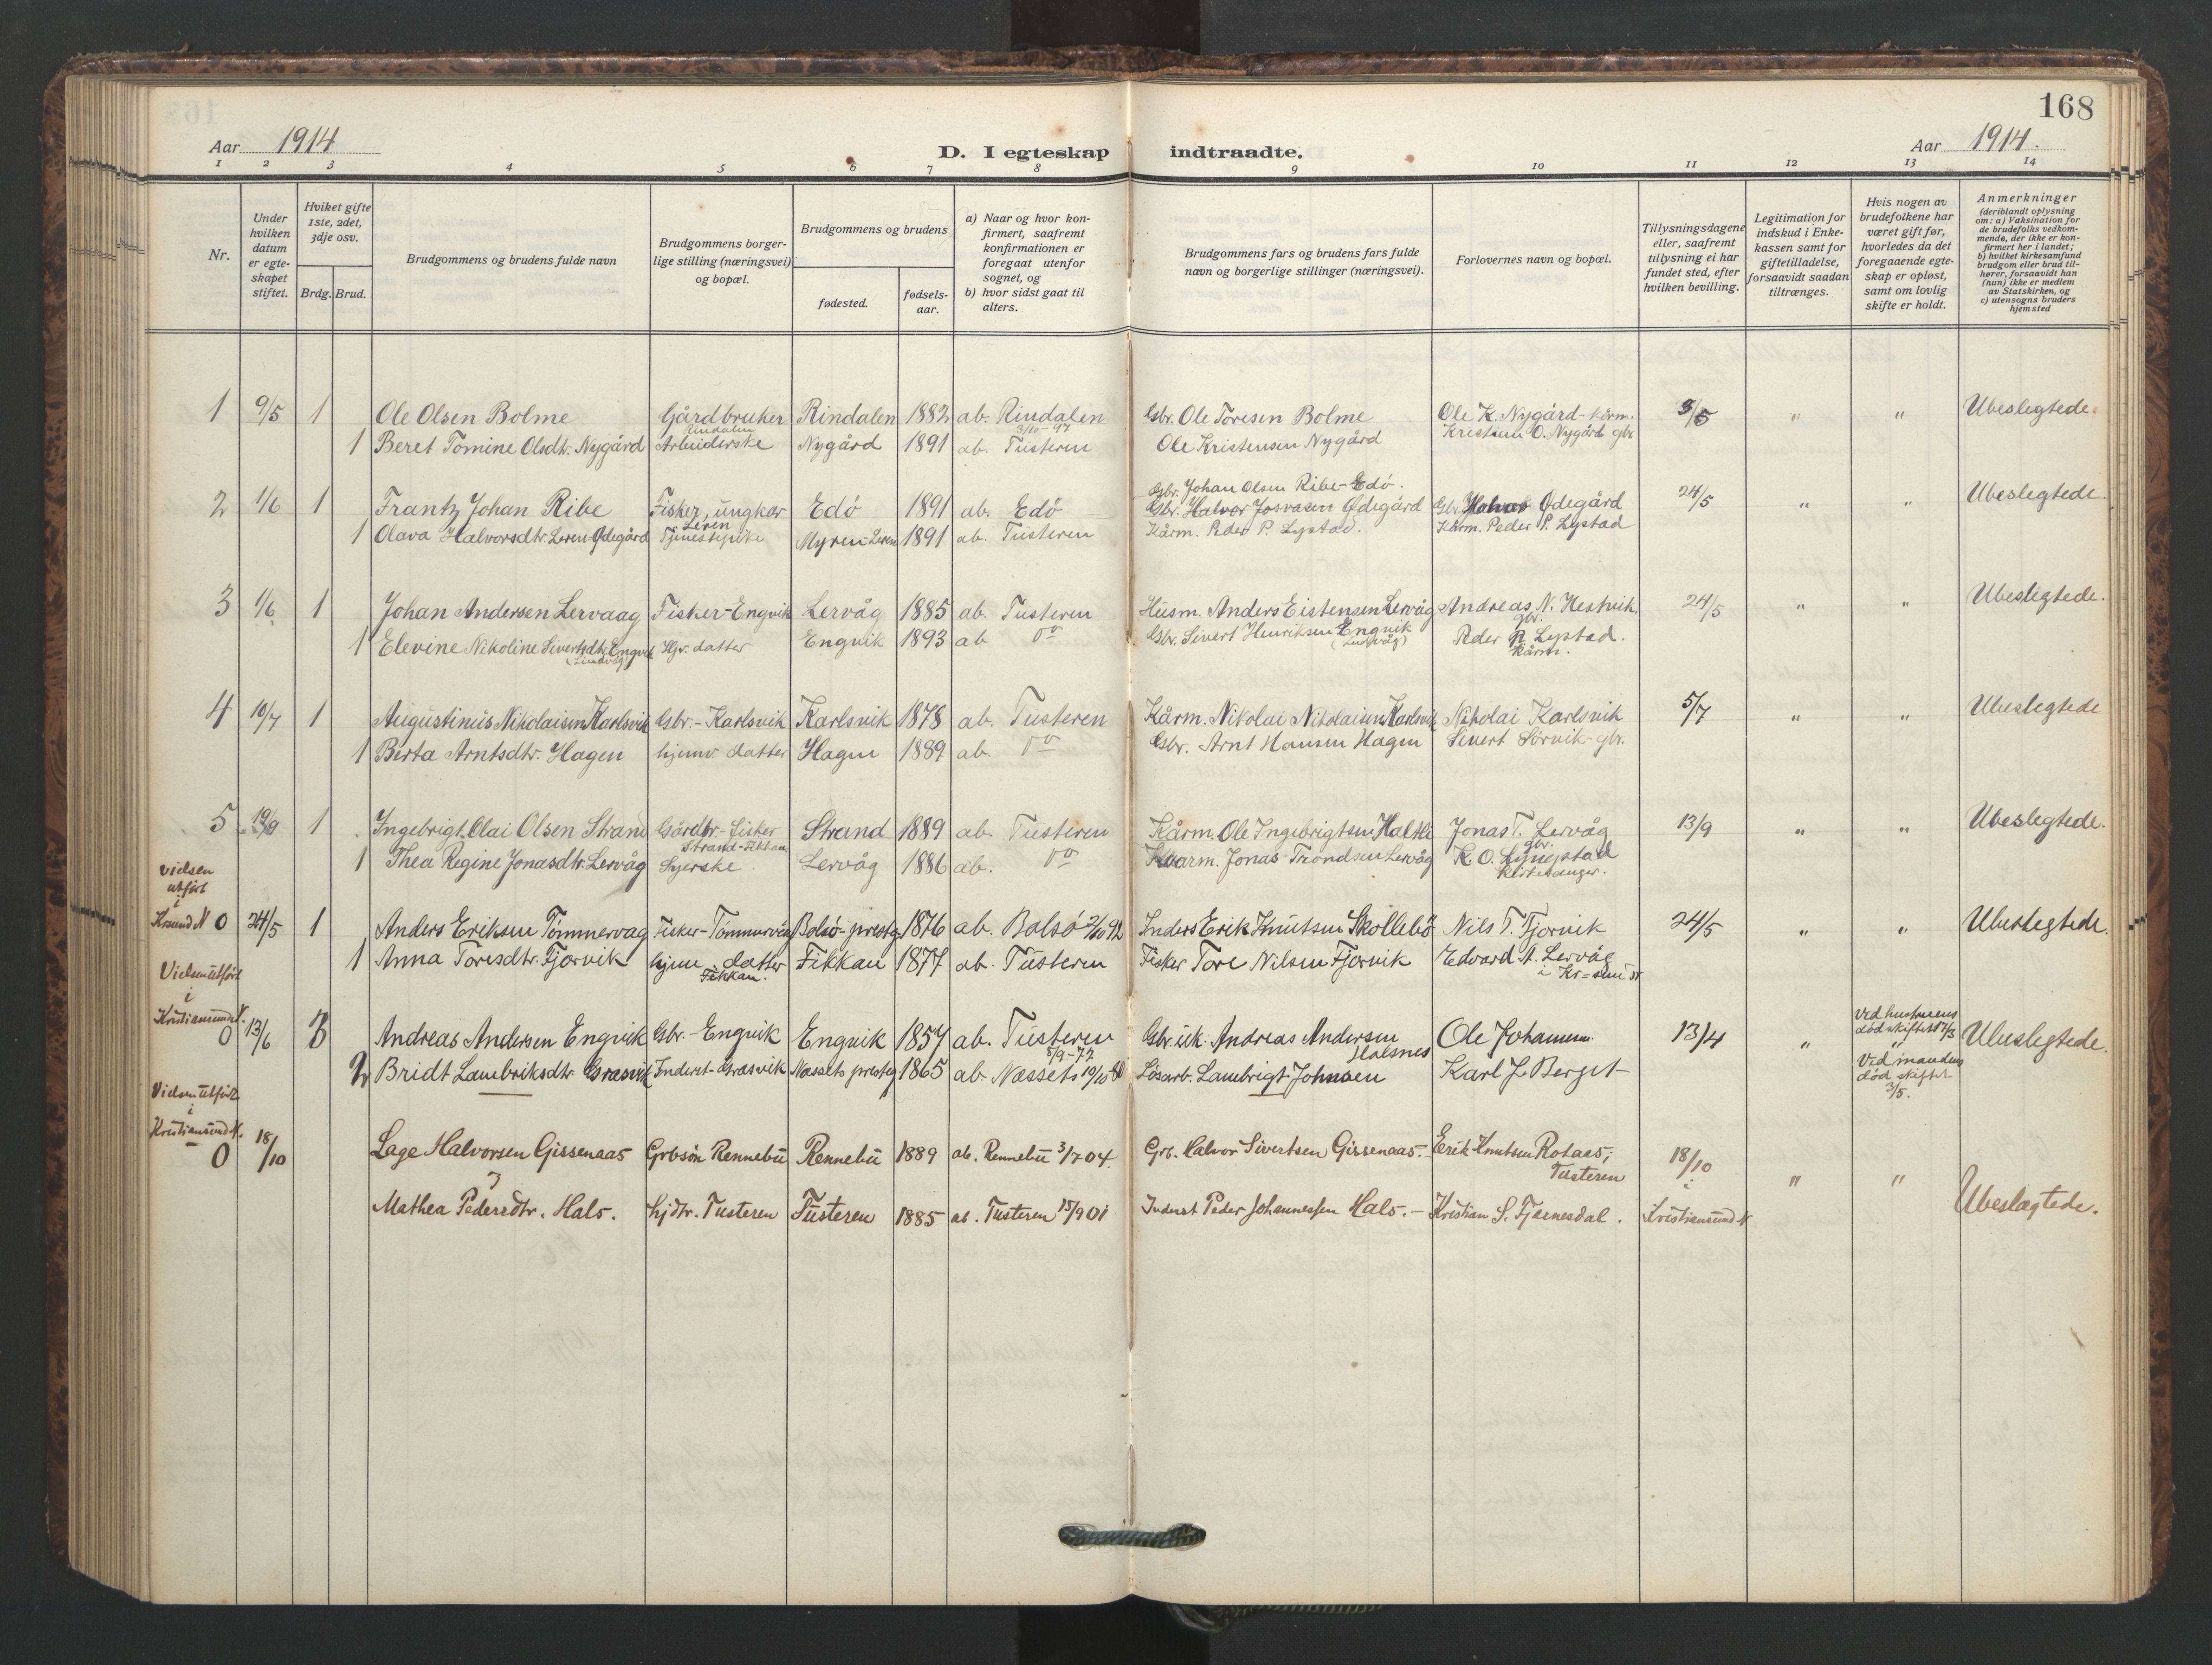 168
Aar 1914
D. I egteskap indtraadte.
Aar 1914.
1 2 3 4 5 6 7 8 9 10 11 12 13 14
Nr.
Under hvilken datum er egte-skapet stiftet.
Hviket gifte 1ste, 2det, 3dje osv.
Brdg. Brud.
Brudgommens og brudens fulde navn
Brudgommens borger-lige stilling (næringsvei) og bopæl.
Brudgommens og brudens
fødested.
fødsels-aar.
a) Naar og hvor kon-firmert, saafremt konfirmationen er foregaat utenfor sognet, og
b) hvor sidst gaat til alters.
Brudgommens fars og brudens fars fulde navn og borgerlige stillinger (næringsvei).
Forlovernes navn og bopæl.
Tillysningsdagene eller, saafremt tillysning ei har fundet sted, efter hvilken bevilling.
Legitimation for indskud i Enke-kassen samt for giftetilladelse, forsaavidt saadan tiltrænges.
Hvis nogen av brudefolkene har været gift før, hvorledes da det foregaaende egte-skap er opløst, samt om lovlig skifte er holdt.
Anmerkninger (deriblandt oplysning om: a) Vaksination for de brudefolks vedkom-mende, der ikke er kon-firmert her i landet; b) hvilket kirkesamfund brudgom eller brud til-hører, forsaavidt han (hun) ikke er medlem av Statskirken, og c) utensogns bruders hjemsted
1 9/5 1 Ole Olsen Bolme Gårdbruker Rindalen Rindalen 1882 ab. Rindalen 3/10-97 Gbr. Ole Toresen Bolme Ole K. Nygård - kårm. 3/5 " " Ubeslegtede.
1 Beret Tomine Olsdtr. Nygård Arbeiderske Nygård 1891 ab. Tusteren Ole Kristensen Nygård Kristian O. Nygård gbr.
2 1/6 1 Frantz Johan Ribe Fisker, ungkar Edö 1891 ab. Edö Gbr. Johan Olsen Ribe-Edö. Gbr. Halvor Ödegård 24/5 " " Ubeslegtede.
1 Olava Halvorsdtr. Leren-Ödegård Leren Tjenestepike Myren-Leren 1891 ab. Tusteren Gbr. Halvor Josvasen Ödegård Kårm. Peder P. Lystad. Kårm. Peder P. Lystad
3 1/6 1 Johan Andersen Lervaag Fisker-Engvik Lervåg 1885 ab. Tusteren Husm. Anders Eistensen Lervåg Andreas N. Hestvik gbr. 24/5 " " Ubeslegtede.
1 Elevine Nikoline Sivertsdtr. Engvik Hjv. datter Engvik 1893 ab do Gbr. Sivert Henriksen Engvik Peder P. Lystad. kårm.
4 10/7 1 Augustinus Nikolaisen Karlsvik Gbr.-Karlsvik Karlsvik 1878 ab. Tusteren Kårm. Nikolai Nikolaisen Karlsvik Nikolai Karlsvik 5/7 " " Ubeslegtede
1 Berta Arntsdtr. Hagen hjemv. datter Hagen 1889 ab. do Gbr. Arnt Hansen Hagen Sivert Sörvik-gbr.
5 19/9 1 Ingebrigt Olai Olsen Strand Gårdbr.-Fisker Strand-Fikkan Strand 1889 ab. Tusteren Kårm. Ole Ingebrigtsen Haltli Jonas T. Lervåg gbr. 13/9 " " Ubeslegtede.
1 Thea Regine Jonasdtr. Lervåg Syerske Lervåg 1886 ab. do Kaarm. Jonas Trondsen Lervåg K. O. Lyngstad kirkesanger.
Vielsen utfört i Krsund N 0 24/5 1 Anders Eriksen Tömmervag Fisker-Tömmervåg Bolsö-prestg. 1876 ab. Bolsö 2/10 92 Inders Erik Knutsen Skollebö Nils T. Fjorvik 24/5 " " Ubeslegtede.
1 Anna Toresdtr. Fjorvik hjem. datter Fikkan. Fikkan 1877 ab. Tusteren Fisker Tore Nilsen Fjorvik Edvard A. Lervåg i Kr=sund N
Vielsen utfört i Kristiansund N. 0 13/6 3 Andreas Andersen Engvik Gbr.-Engvik Engvik 1857 ab. Tusteren 8/9-72 Gbr. Andreas Andersen Halsnes Ole Johannesen. 13/4 " Ved hustruens död skiftet 17/3 Ubeslegtede.
2 Bridt Lambriksdtr. Grasvik Inderst-Grasvik Næssets prestg. 1865 ab. Næssets 10/10 80 Lösarb. Lambrigt Johnsen Karl J. Berget " Ved mandens död skiftet 3/5.
Vielsen utfört i Kristiansund N. 0 18/10 Lage Halvorsen Gissenaas Grbsön Rennebu Rennebu 1889 ab. Rennebu 3/7 04. Grb. Halvor Sivertsen Gissenaas.- Erik Knutsen Rotaas; Tusteren 18/10 i Kristiansund N " " Ubeslægtede.
Mathea Pedersdtr. Hals. hjdtr. Tusteren Tusteren 1885 ab. Tusteren 15/9 01 Inderst Peder Johannessen Hals.- Kristian S. Fjærnesdal.